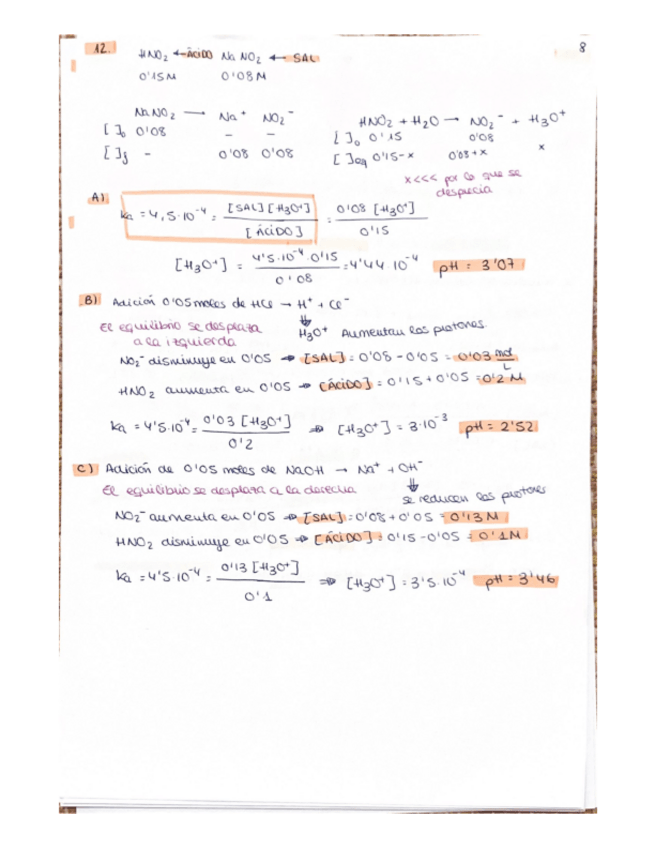 8
12. HNO₂ ← ÁCIDO NaNO₂ ← SAL
0'15M 0'08M
NaNO₂ → Na⁺ NO₂⁻
[ ]₀ 0'08 - -
[ ]f - 0'08 0'08
HNO₂ + H₂O → NO₂⁻ + H₃O⁺
[ ]₀ 0'15 0'08
[ ]eq 0'15-x 0'08+x x
x<<< por lo que se
desprecia
A) Ka = 4,5·10⁻⁴ = [SAL][H₃O⁺] / [ÁCIDO] = 0'08 [H₃O⁺] / 0'15
[H₃O⁺] = 4'5·10⁻⁴·0'15 / 0'08 = 4'44·10⁻⁴ pH = 3'07
B) Adición 0'05 moles de HCl → H⁺ + Cl⁻
El equilibrio se desplaza
a la izquierda
⇓
H₃O⁺ Aumentan los protones.
NO₂⁻ disminuye en 0'05 ⇒ [SAL] = 0'08 - 0'05 = 0'03 mol/L
HNO₂ aumenta en 0'05 ⇒ [ÁCIDO] = 0'15 + 0'05 = 0'2 M
Ka = 4'5·10⁻⁴ = 0'03 [H₃O⁺] / 0'2 ⇒ [H₃O⁺] = 3·10⁻³ pH = 2'52
C) Adición de 0'05 moles de NaOH → Na⁺ + OH⁻
El equilibrio se desplaza a la derecha
⇓
se reducen los protones
NO₂⁻ aumenta en 0'05 ⇒ [SAL] = 0'08 + 0'05 = 0'13 M
HNO₂ disminuye en 0'05 ⇒ [ÁCIDO] = 0'15 - 0'05 = 0'1M
Ka = 4'5·10⁻⁴ = 0'13 [H₃O⁺] / 0'1 ⇒ [H₃O⁺] = 3'5·10⁻⁴ pH = 3'46